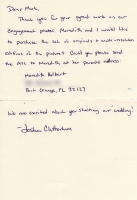 Dear Mark,
Thank you for your great work on our
engagement photos. Meredith and I would like
to purchase the set of originals & multi-resolution
editions of the pictures. Could you please send
the disc to Meredith at her parents address:
Meredith
Port Orange, FL 32127
We are excited about you shooting our wedding!
Joshua